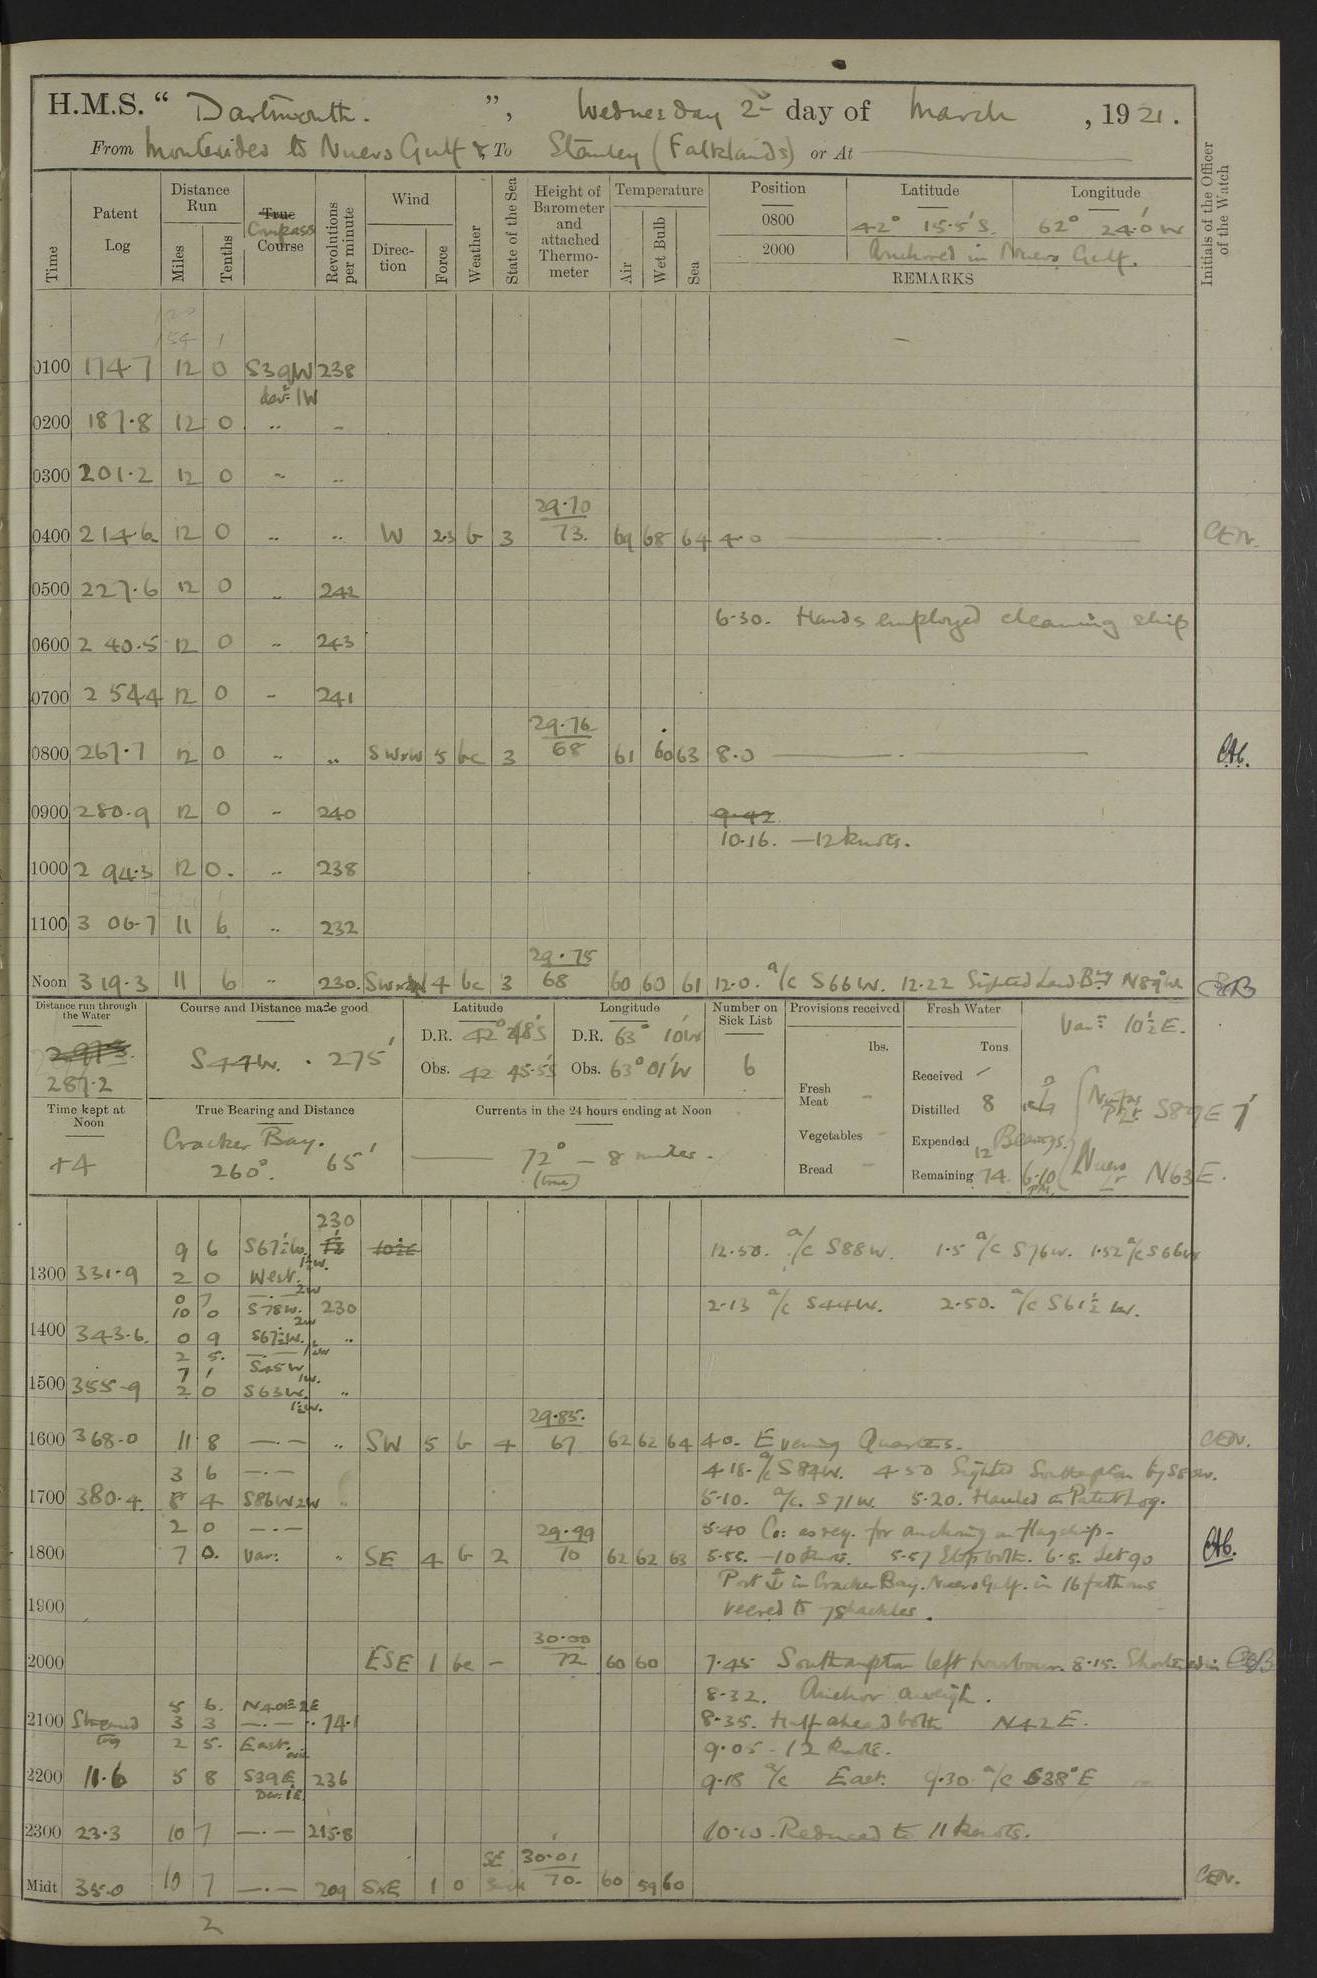 H.M.S. “ Dartmouth. ”, Wednesday 2nd day of March , 1921.
From Montevideo to Nuevo Gulf & To Stanley (Falklands) or At
Initials of the Officer of the Watch
Time
Patent Log
Distance Run
Miles
Tenths
True Compass Course
Revolutions per minute
Wind
Direction
Force
Weather
State of the Sea
Height of Barometer and attached Thermometer
Temperature
Air
Wet Bulb
Sea
Position Latitude Longitude
0800 42° 15.5'S. 62° 24.0'W
2000 Anchored in Nuevo Gulf.
REMARKS
154 1
0100 174.7 12 0 S39W 238
devn 1W
0200 187.8 12 0 " "
0300 201.2 12 0 " "
29.70
0400 214.6 12 0 " " W 2.3 b 3 73. 69 68 64 4.0 CEN.
0500 227.6 12 0 " 242
6.30. Hands employed cleaning ship
0600 240.5 12 0 " 243
0700 254.4 12 0 " 241
29.76
0800 267.7 12 0 " " SWxW 5 bc 3 68 61 60 63 8.0
0900 280.9 12 0 " 240 9.42
10.16. — 12 knots.
1000 294.3 12 0. " 238
1100 306.7 11 6 " 232
29.75
Noon 319.3 11 6 " 230. SWxW 4 bc 3 68 60 60 61 12.0. a/c S66W. 12.22 Sighted Land N89W
Distance run through the Water
287.2
Course and Distance made good
S44W. . 275'
Latitude
D.R. 42° 48'S
Obs. 42 45.5'S
Longitude
D.R. 63° 10'W
Obs. 63° 01'W
Number on Sick List
6
Provisions received
lbs.
Fresh Meat -
Vegetables -
Bread -
Fresh Water
Tons
Received /
Distilled 8
Expended 12
Remaining 74
Varn 10½E.
S89E 7'
Bearings.
6.10 PM.
Nuevo N63E.
Time kept at Noon
+4
True Bearing and Distance
Cracker Bay.
260°. 65'
Currents in the 24 hours ending at Noon
72° — 8 miles.
(true)
230
9 6 S67½W. 12.50. a/c S88W. 1.5 a/c S76W. 1.52 a/c S66W
1300 331.9 2 0 West.
0 7
10 0 S78W. 230 2.13 a/c S44W. 2.50. a/c S61½W.
1400 343.6. 0 9 S67½W. "
2 5.
7 1 S45W
1500 355.9 2 0 S63W. "
29.85.
1600 368.0 11 8 —.— " SW 5 b 4 67 62 62 64 4.0. Evening Quarters. CEN.
3 6 —.— 4.18. a/c S84W. 4.50 Sighted Southampton
1700 380.4 8 4 S86W 2W 5.10. a/c. S71W. 5.20. Hauled in Patent Log.
2 0 —.— 29.99 5.40 Co: as req. for anchoring on flagship.
1800 7 0. Var: " SE 4 b 2 70 62 62 63 5.55. —10 knots. 5.57 Stop both. 6.5. Let go
Port ⚓ in Cracker Bay. Nuevo Gulf. in 16 fathoms
1900 veered to 7 shackles.
30.00
2000 ESE 1 bc - 72 60 60 7.45 Southampton left harbour. 8.15. Shortened in
8.32. Anchor aweigh.
5 6. N40E 2E
2100 Streamed log 3 3 —.— 74.1 8.35. Half ahead both N42E.
2 5. East. 9.05 - 12 knots.
2200 11.6 5 8 S39E 236 9.18 a/c East. 9.30 a/c S38°E
Dev: 1E
2300 23.3 10 7 —.— 215.8 10.10. Reduced to 11 knots.
SE 30.01
Midt 35.0 10 7 —.— 209 SxE 1 0 70. 60 59 60 CEN.
2